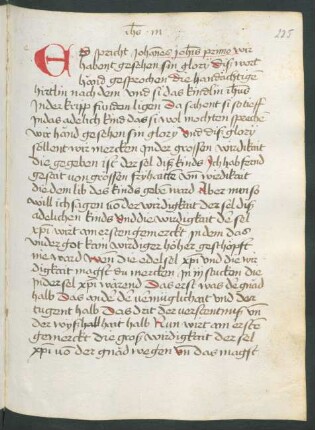 ihs m
215
Es spricht Johannes Johis primo wir
habent gesehen sin glory dis wort
hond gesprochen die
hirtlin nach dem und si das kindlin ihus
In der kripp funden ligen Da sahent si so tieff
In das adelich kind das si wol mochten spreche
wir hand gesehen sin glory Und dis glory
sollent wir mercken In der grossen wirdikait
die gegeben ist der sel dis kinds Ich hab fend
gesait von grosser fryhaitte von wirdikait
die dem lib des kinds geben ward Aber inn so
will ich sagen vo der wirdigkait der sel dis
adelichen kinds Und die wirdigkait der sel
xpi wirt am ersten gemerckt In dem das
under got kain wirdiger höher geschöpff
nie ward Won die edel sel xpi und die wir
digkait magst du mercken in iij stucken die
In der sel xpi warend Das erst was der gnad
halb Das ander der vermuglichait und der
tugent halb Das drit der verstentnus un
der wyshait halb Nun wirt am erste
gemerckt die gros wirdigkait der sel
xpi vo der gnad wegen Un das magst